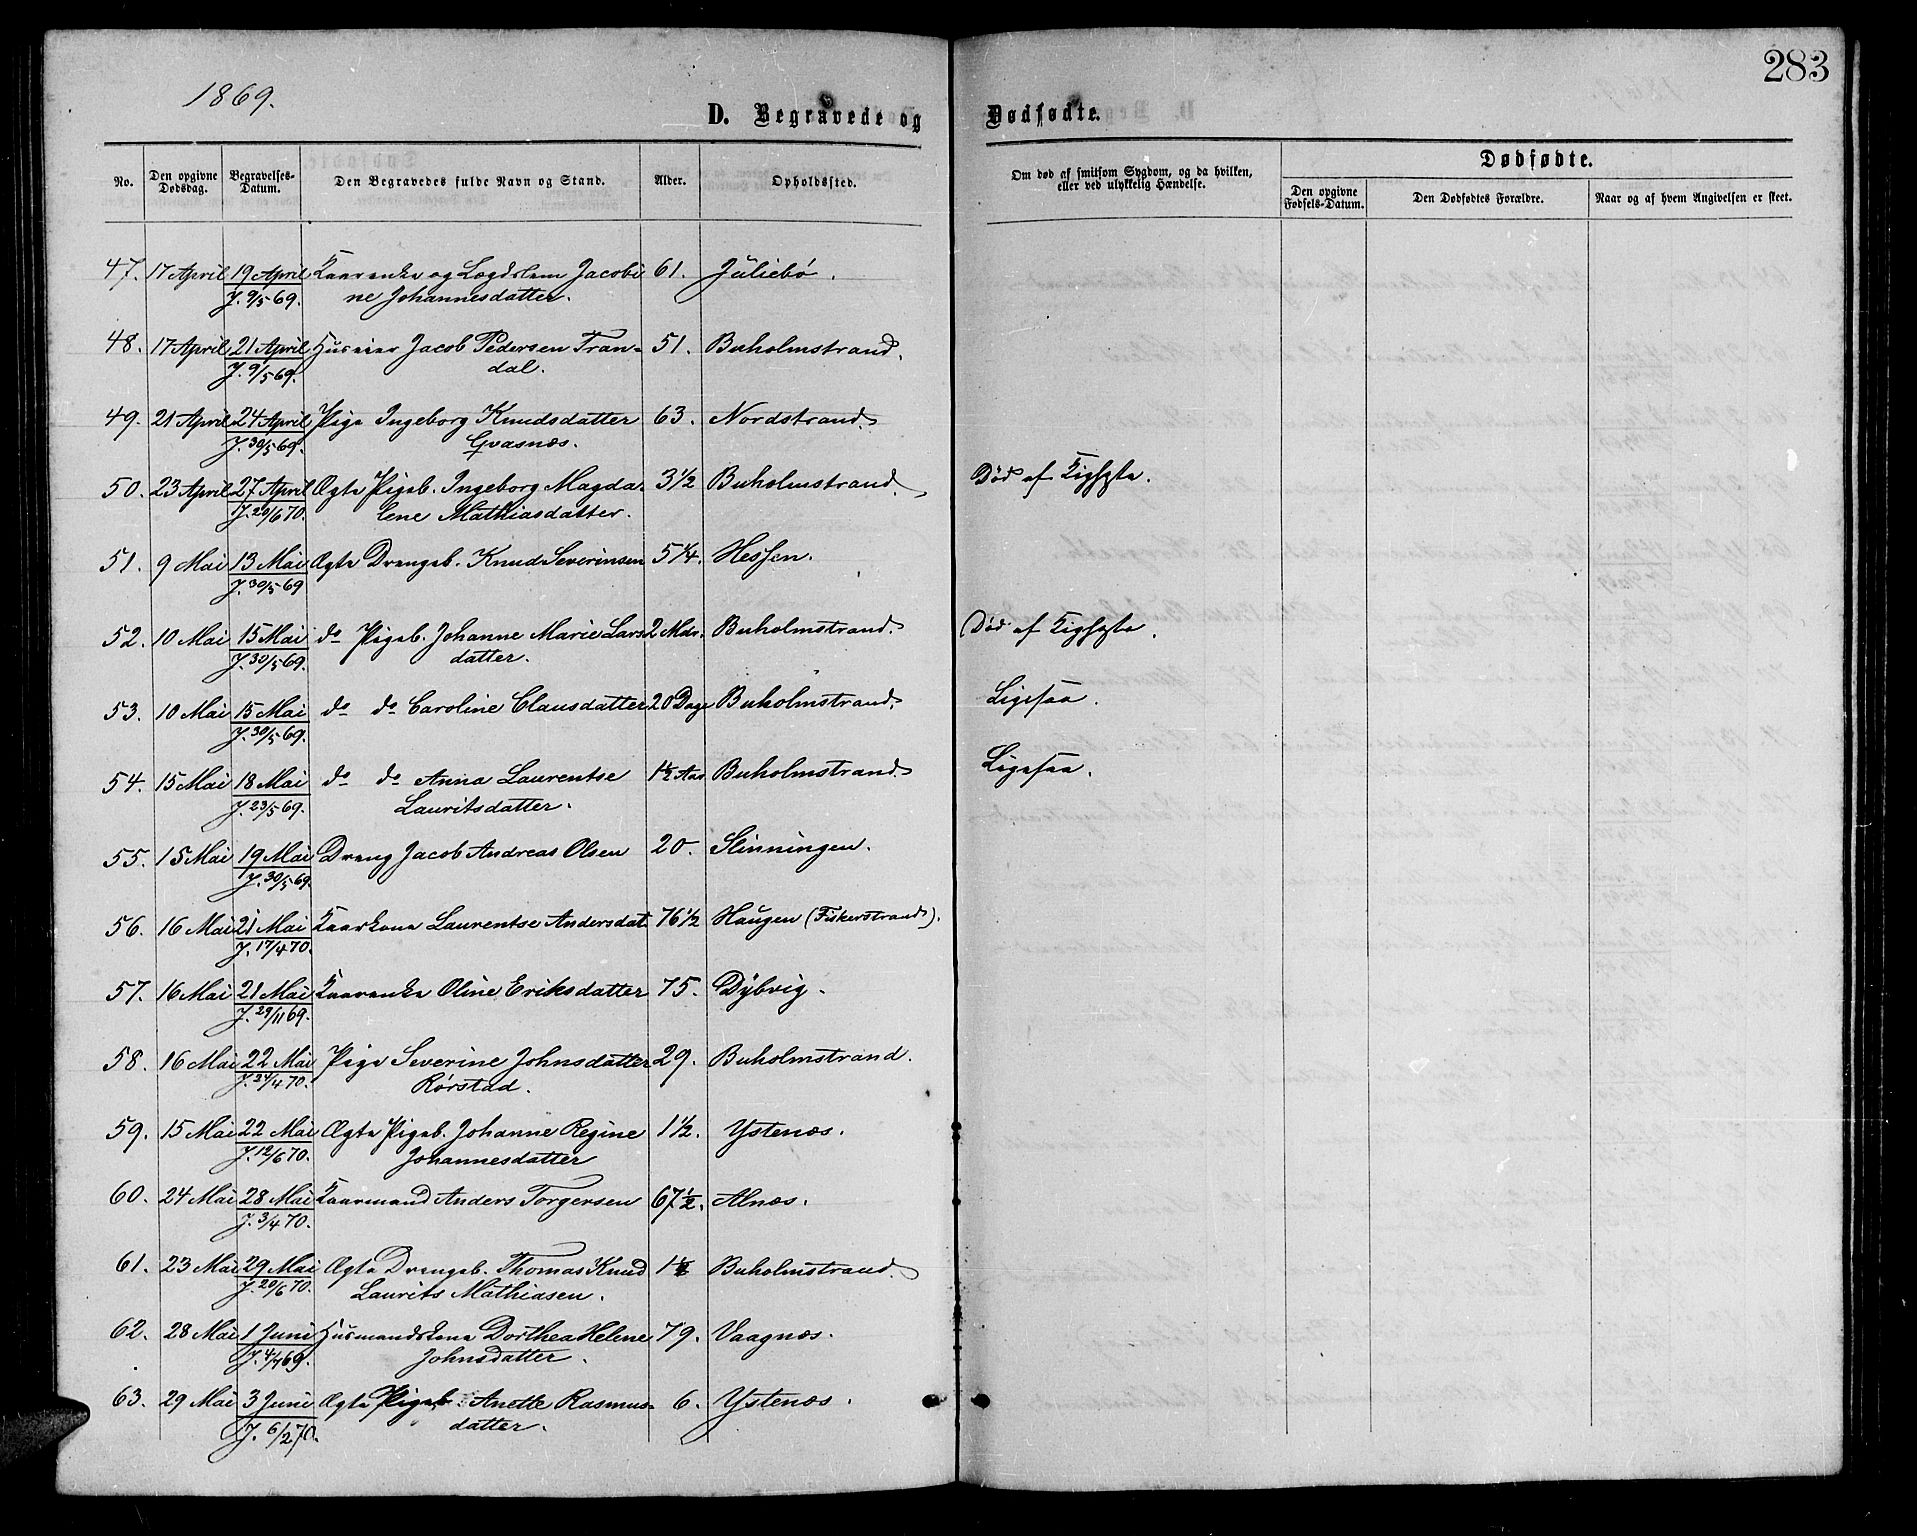 283
1869.
D. Begravede og Dødfødte.
No. Den opgivne Dødsdag. Begravelses-Datum. Den Begravedes fulde Navn og Stand. Alder. Opholdssted. Om død af smitsom Sygdom, og da hvilken, eller ved ulykkelig Hændelse. Dødfødte.
Den opgivne Fødsels-Datum. Den Dødfødtes Forældre. Naar og af hvem Angivelsen er skeet.
47. 17 April 19 April Kaarenke og Lægdslem Jacobi 61. Juliebø.
J. 9/5 69. ne Johannesdatter.
48. 17 April 21 April Huseier Jacob Pedersen Tran- 51. Buholmstrand.
J. 9/5 69. dal.
49. 21 April 24 April Pige Ingeborg Knudsdatter 63. Nordstrand.
J. 30/5 69. Gvasnæs.
50. 23 April 27 April Ægte Pigeb. Ingeborg Magda- 3 1/2 Buholmstrand. Død af Kighoste.
J. 20/6 70. lene Mathiasdatter.
51. 9 Mai 13 Mai Ægte Drengeb. Knud Severinsen 5 1/4. Hessen.
J. 30/5 69
52. 10 Mai 15 Mai do Pigeb. Johanne Marie Lars 2 Mdr. Buholmstrand. Død af Kighoste.
J. 30/5 69. datter.
53. 10 Mai 15 Mai do do Caroline Clausdatter 20 Dage Buholmstrand. Ligesaa.
J. 30/5 69.
54. 15 Mai 18 Mai do do Anna Laurentse 1 1/2 Aar Buholmstrand. Ligesaa.
J. 23/5 69. Lauritsdatter.
55. 15 Mai 19 Mai Dreng Jacob Andreas Olsen 20. Slinningen.
J. 30/5 69.
56. 16 Mai 21 Mai Kaarkone Laurentse Andersdat 76 1/2 Haugen (Fiskerstrand).
J. 17/4 70.
57. 16 Mai 21 Mai Kaarenke Oline Eriksdatter 75. Dybvig.
J. 29/11 69.
58. 16 Mai 22 Mai Pige Severine Johnsdatter 29. Buholmstrand.
J. 24/4 70. Rørstad.
59. 15 Mai 22 Mai Ægte Pigeb. Johanne Regine 1 1/2. Ystenæs.
J. 12/6 70. Johannesdatter
60. 24 Mai 28 Mai Kaarmand Anders Torgersen 67 1/2. Alnæs.
J. 3/4 70.
61. 23 Mai 29 Mai Ægte Drengeb. Thomas Knud 1 1/2 Buholmstrand.
J. 20/6 70. Laurits Mathiasen.
62. 28 Mai 1 Juni Husmandskone Dorthea Helene 79. Vaagnæs.
J. 4/7 69. Johnsdatter.
63. 29 Mai 3 Juni Ægte Pigeb. Anette Rasmus- 6. Ystenæs.
J. 6/2 70. datter.